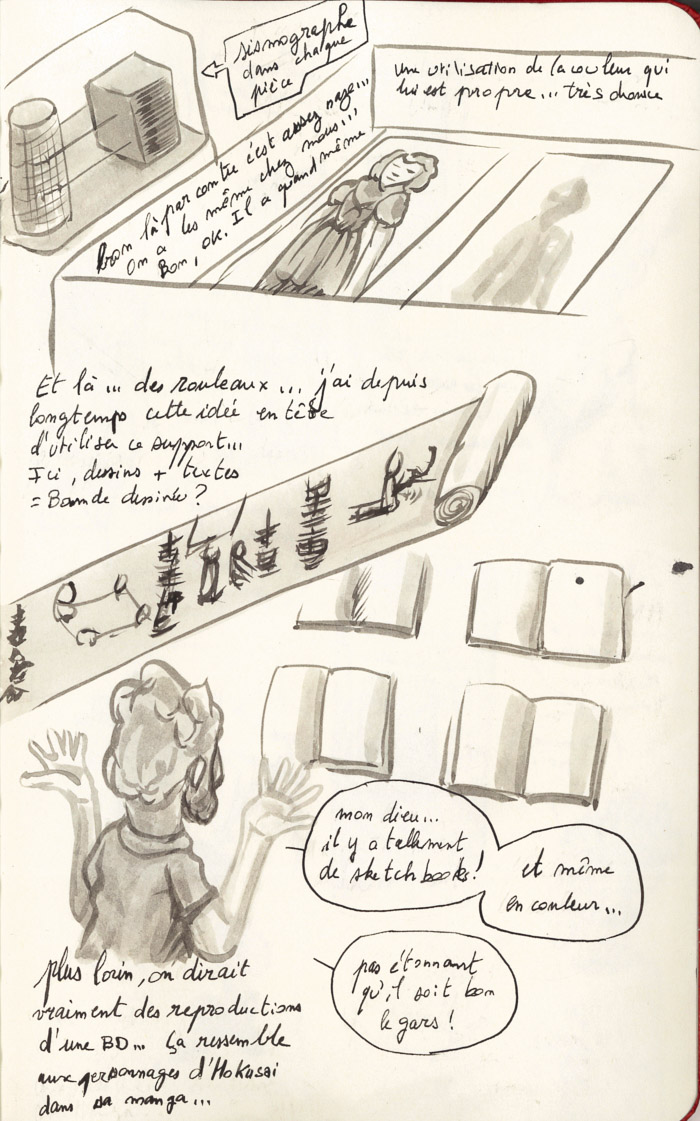 sismographe
dans chaque
pièce
une utilisation de la couleur qui
lui est propre... très douce
Bon là par contre c'est assez naze...
On a les même chez nous...
Bon, ok. Il a quand même
Et là... des rouleaux... j'ai depuis
longtemps cette idée en tête
d'utiliser ce support...
Ici, dessins + textes
= Bande dessinée ?
mon dieu...
il y a tellement
de sketchbooks!
et même
en couleur...
pas étonnant
qu'il soit bon
le gars !
plus loin, on dirait
vraiment des reproductions
d'une BD... ça ressemble
aux personnages d'Hokusai
dans sa manga...